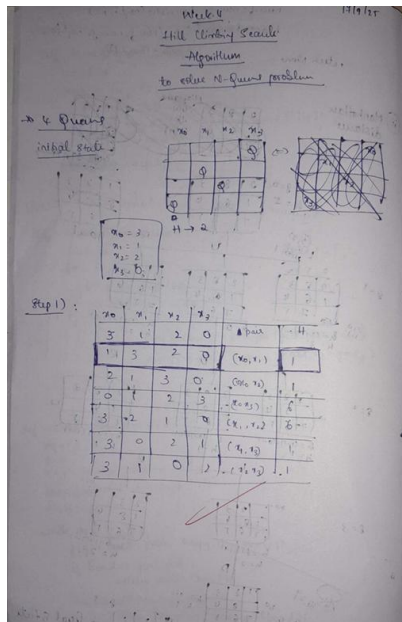 Week-4
17/9/25
Hill Climbing Search
Algorithm
to solve N-Queens problem
→ 4 Queens
initial state
x0 x1 x2 x3
Q
Q
Q
Q
H → 2
x0 = 3
x1 = 1
x2 = 2
x3 = 0
Step 1) :
x0 x1 x2 x3
3 1 2 0 pair H
1 3 2 0 (x0, x1) 1
2 1 3 0 (x0 x2) 1
0 1 2 3 (x0 x3) 6
3 2 1 0 (x1, x2) 6
3 0 2 1 (x1, x3) 1
3 1 0 2 (x2 x3) 1